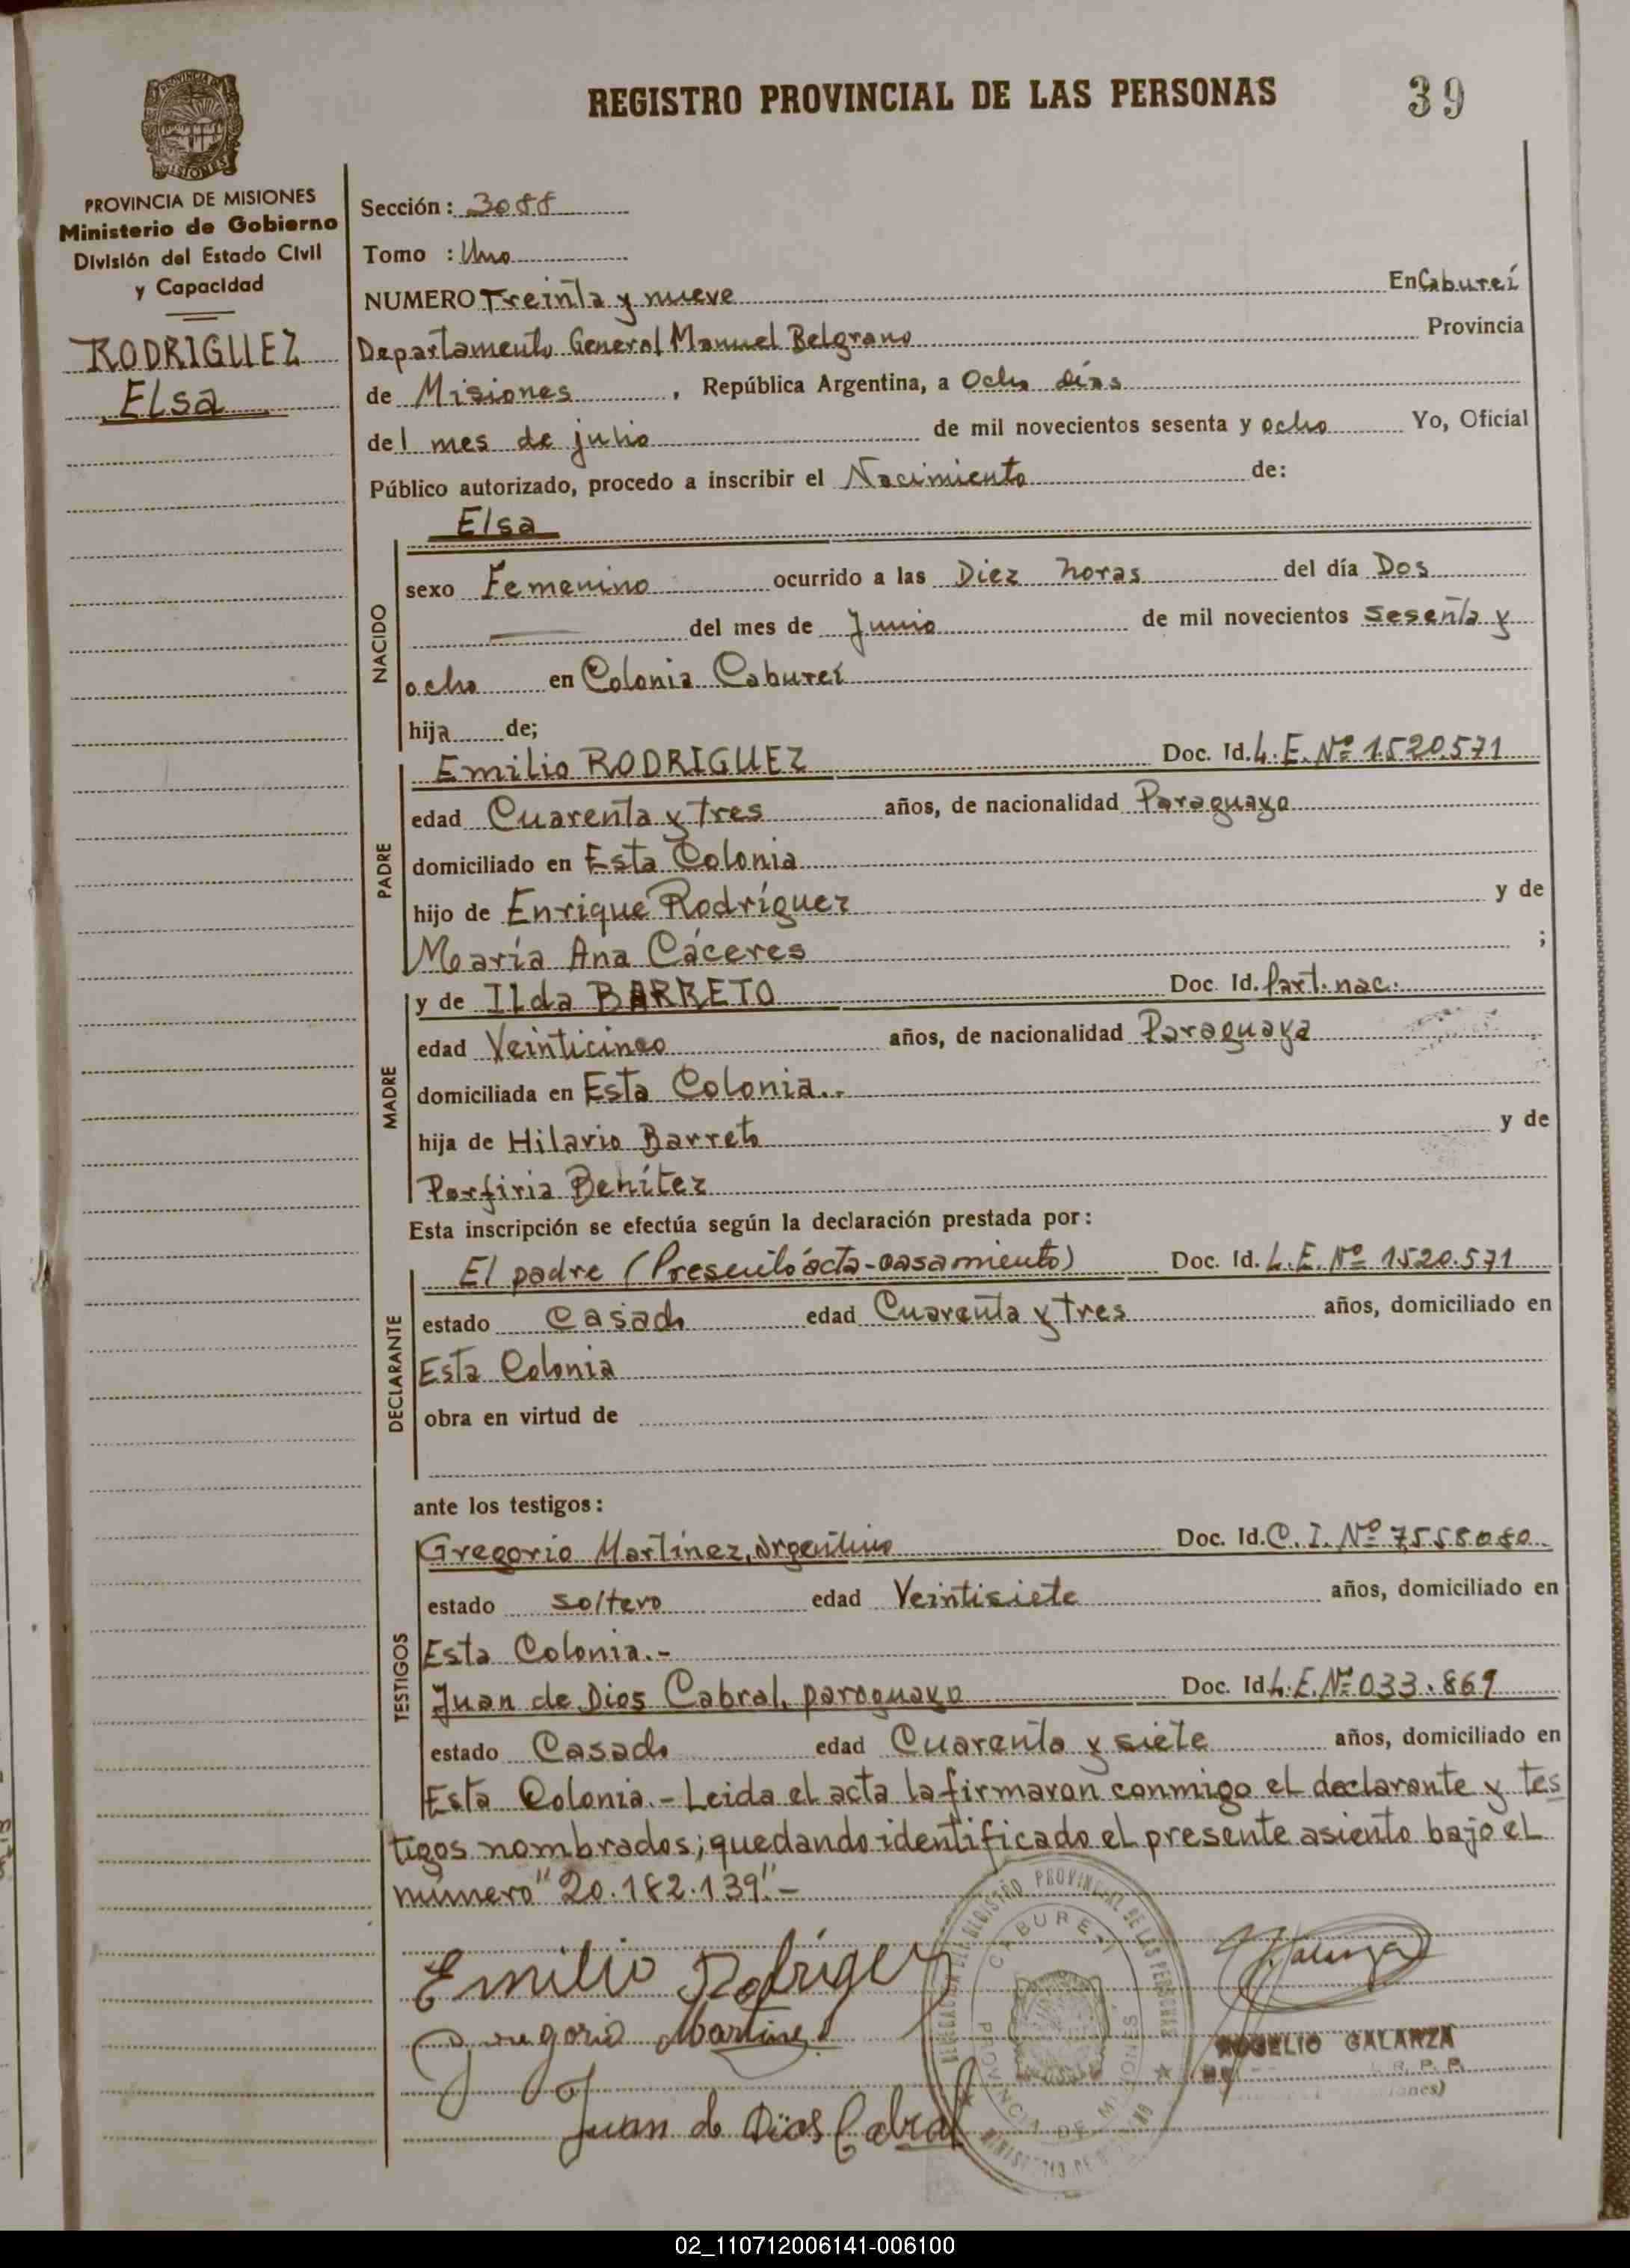 REGISTRO PROVINCIAL DE LAS PERSONAS
39
PROVINCIA DE MISIONES
Ministerio de Gobierno
División del Estado Civil
y Capacidad
RODRIGUEZ
Elsa
Sección: 3088
Tomo : Uno
NUMERO Treinta y nueve En Cabureí
Departamento General Manuel Belgrano Provincia
de Misiones, República Argentina, a Ocho días
del mes de julio de mil novecientos sesenta y ocho Yo, Oficial
Público autorizado, procedo a inscribir el Nacimiento de:
Elsa
NACIDO
sexo Femenino ocurrido a las Diez horas del día Dos
del mes de Junio de mil novecientos sesenta y
ocho en Colonia Cabureí
hija de;
PADRE
Emilio RODRIGUEZ Doc. Id. L.E. Nº 1.520.571
edad Cuarenta y tres años, de nacionalidad Paraguayo
domiciliado en Esta Colonia
hijo de Enrique Rodríguez y de
María Ana Cáceres ;
MADRE
y de Ilda BARRETO Doc. Id. Part. nac.
edad Veinticinco años, de nacionalidad Paraguaya
domiciliada en Esta Colonia.-
hija de Hilario Barreto y de
Porfiria Benítez
Esta inscripción se efectúa según la declaración prestada por:
DECLARANTE
El padre (Presentó acta-casamiento) Doc. Id. L.E. Nº 1.520.571
estado Casado edad Cuarenta y tres años, domiciliado en
Esta Colonia
obra en virtud de
ante los testigos:
TESTIGOS
Gregorio Martínez, argentino Doc. Id. C.I. Nº 7.558.080
estado soltero edad Veintisiete años, domiciliado en
Esta Colonia.-
Juan de Dios Cabral, paraguayo Doc. Id L.E. Nº 033.869
estado Casado edad Cuarenta y siete años, domiciliado en
Esta Colonia.- Leida el acta la firmaron conmigo el declarante y tes
tigos nombrados; quedando identificado el presente asiento bajo el
número "20.182.139".-
Emilio Rodriguez
Gregorio Martinez
Juan de Dios Cabral
CABUREI
PROVINCIA DE MISIONES
ROGELIO GALARZA
02_110712006141-006100